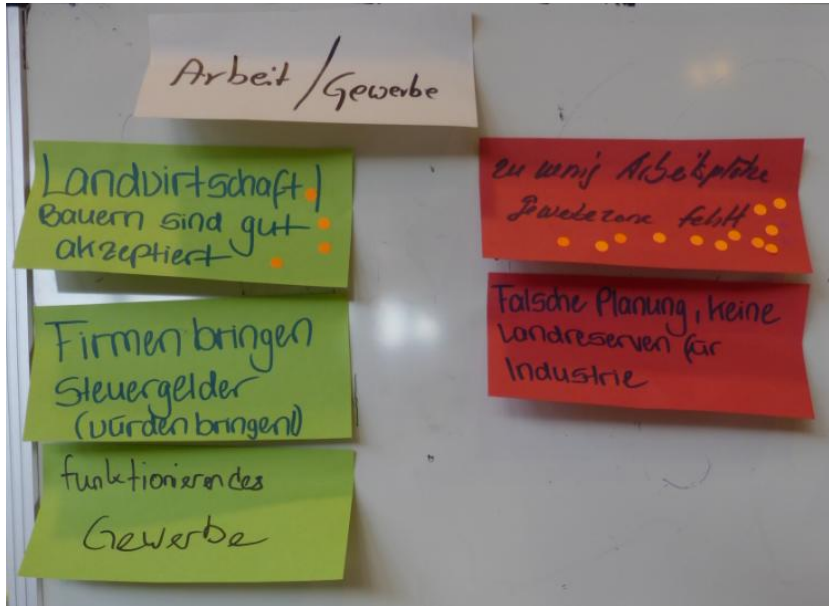 Arbeit / Gewerbe
Landwirtschaft /
Bauern sind gut
akzeptiert
Firmen bringen
Steuergelder
(würden bringen!)
funktionierendes
Gewerbe
zu wenig Arbeitsplätze
Gewerbezone fehlt
Falsche Planung, keine
Landreserven für
Industrie